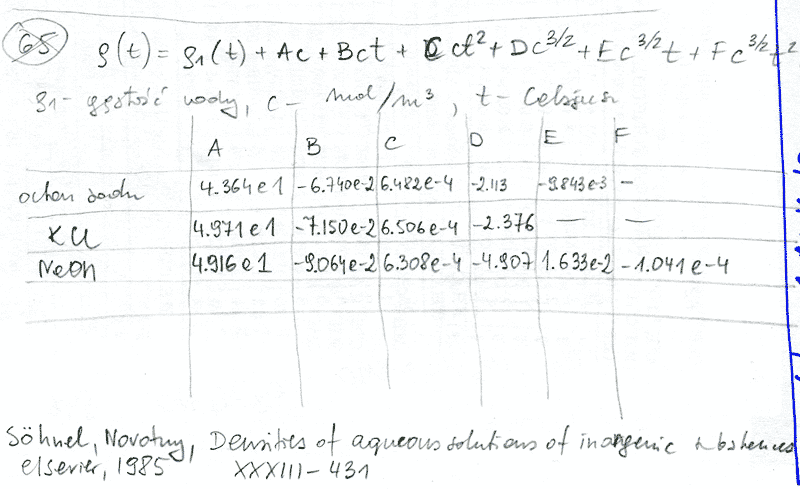 65 ρ(t) = ρ₁(t) + Ac + Bct + Cct² + Dc^3/2 + Ec^3/2 t + Fc^3/2 t²
ρ₁ - gęstość wody, c - mol/m³, t - Celsjusz
A B C D E F
octan sodu 4.364e1 -6.740e-2 6.482e-4 -2.113 -9.843e-3 -
KCl 4.971e1 -7.150e-2 6.506e-4 -2.376 — —
NaOH 4.916e1 -9.064e-2 6.308e-4 -4.907 1.633e-2 -1.041e-4
Söhnel, Novotny, Densities of aqueous solutions of inorganic substances
elsevier, 1985 XXXIII-431